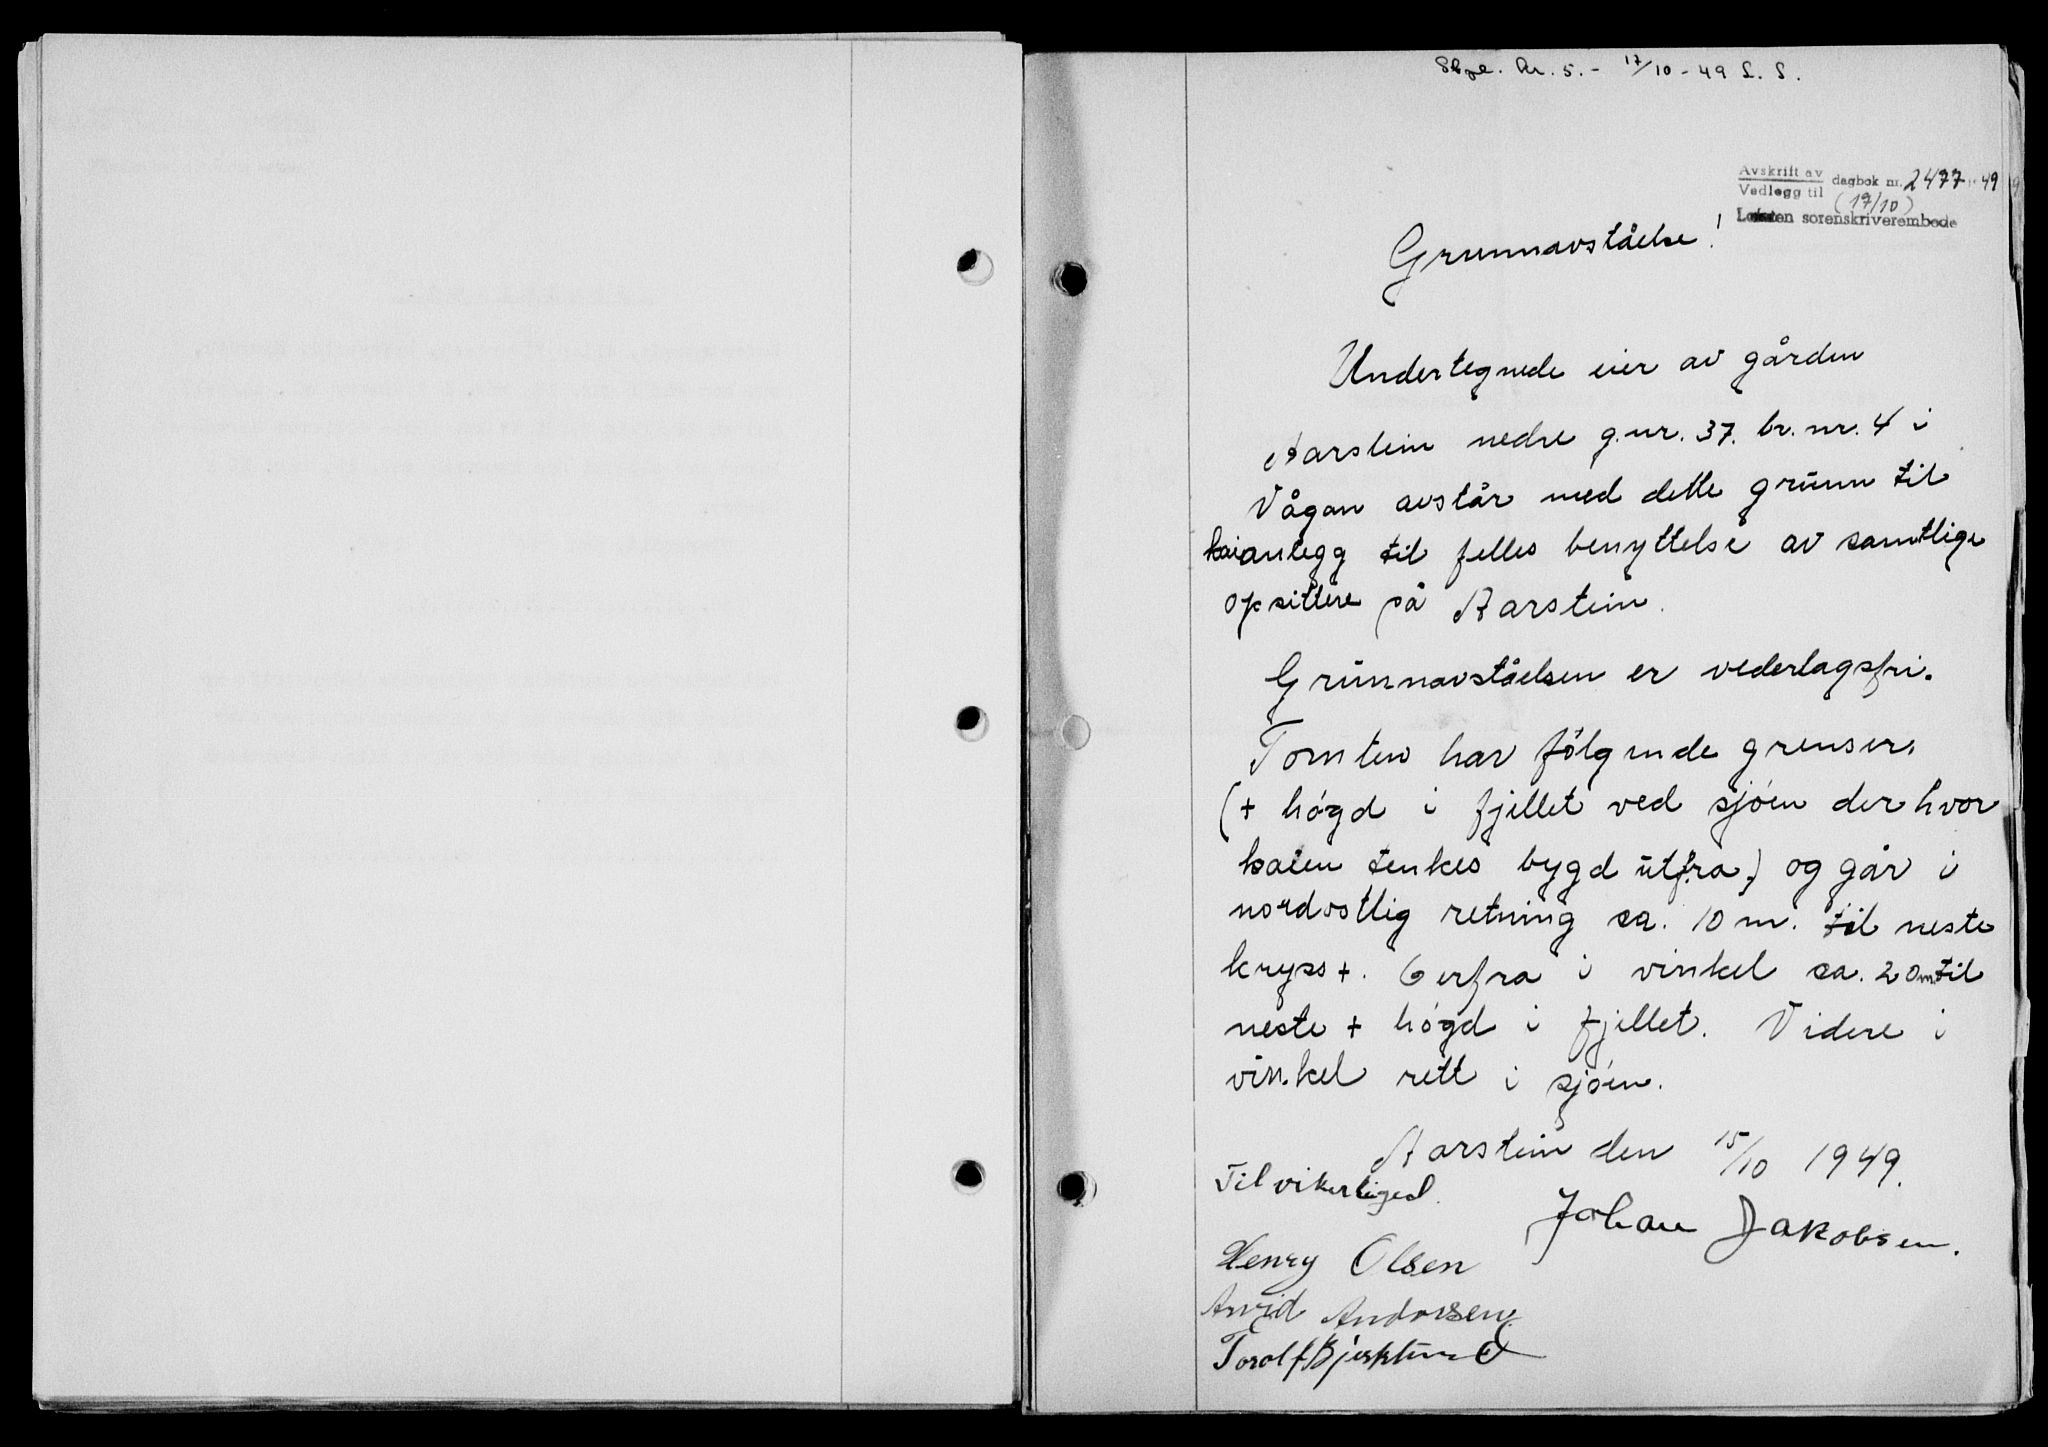 Stpl. kr. 5. - 17/10 - 49 S. S.
Avskrift av
Vedlegg til dagbok nr. 2477 - 49
(17/10)
Lofoten sorenskriverembede
Grunnavståelse!
Undertegnede eier av gården
Aarstein nedre g.nr. 37. br. nr. 4 i
Vågan avstår med dette grunn til
kaianlegg til felles benyttelse av samtlige
opsittere på Aarstein.
Grunnavståelsen er vederlagsfri.
Tomten har følgende grenser.
(+ høgd i fjellet ved sjøen der hvor
kaien tenkes bygd utfra,) og går i
nordostlig retning ca. 10 m. til neste
kryss +. Derfra i vinkel ca. 20m. til
neste + høgd i fjellet. Videre i
vinkel rett i sjøen.
Aarstein den 15/10 1949.
Til vitterliged.
Johan Jakobsen.
Henry Olsen
Arvid Andorsen.
Torolf Bjerklund